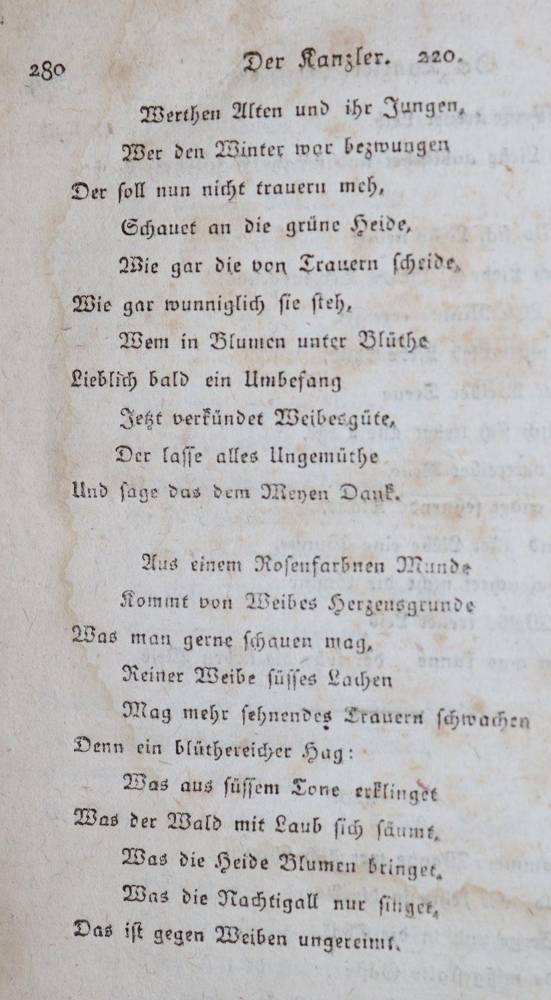 280 Der Kanzler. 220.
Werthen Alten und ihr Jungen,
Wer den Winter war bezwungen
Der soll nun nicht trauern meh,
Schauet an die grüne Heide,
Wie gar die von Trauern scheide,
Wie gar wunniglich sie steh,
Wem in Blumen unter Blüthe
Lieblich bald ein Umbefang
Jetzt verkündet Weibesgüte,
Der lasse alles Ungemüthe
Und sage das dem Meyen Dank.
Aus einem Rosenfarbnen Munde
Kommt von Weibes Herzensgrunde
Was man gerne schauen mag,
Reiner Weibe süsses Lachen
Mag mehr sehnendes Trauern schwachen
Denn ein blüthereicher Hag:
Was aus süssem Tone erklinget
Was der Wald mit Laub sich säumt,
Was die Heide Blumen bringet,
Was die Nachtigall nur singet,
Das ist gegen Weiben ungereimt.